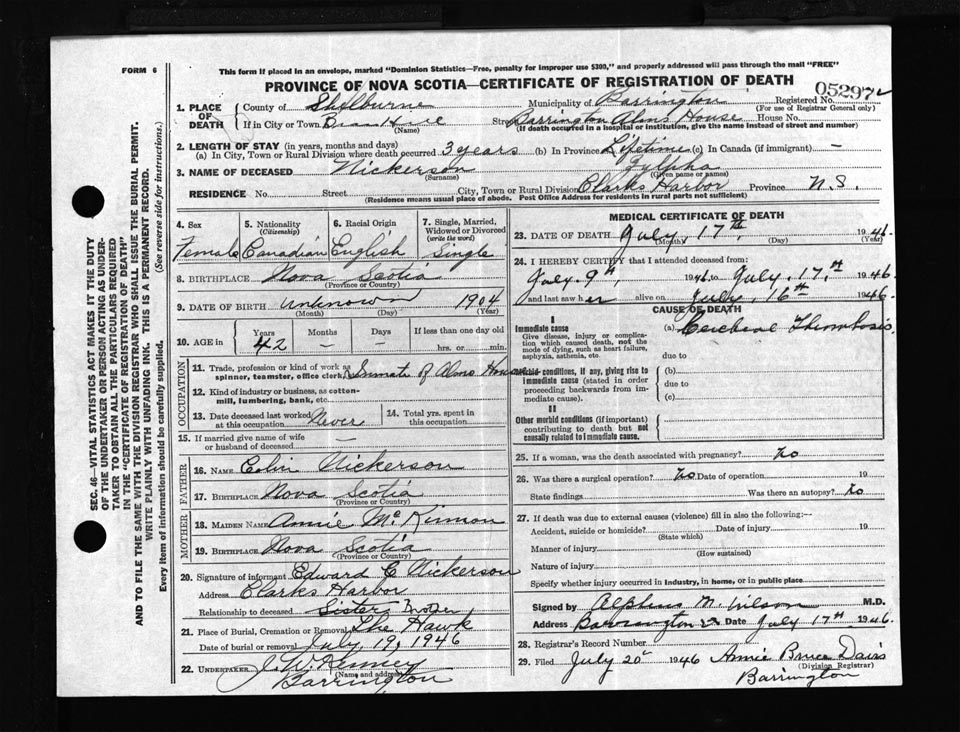 FORM 6
This form if placed in an envelope, marked "Dominion Statistics—Free, penalty for improper use $300," and properly addressed will pass through the mail "FREE"
PROVINCE OF NOVA SCOTIA—CERTIFICATE OF REGISTRATION OF DEATH
05297
1. PLACE OF DEATH County of Shelburne Municipality of Barrington Registered No.
(For use of Registrar General only)
If in City or Town Street Barrington Alms House House No.
(Name) (If death occurred in a hospital or institution, give the name instead of street and number)
2. LENGTH OF STAY (in years, months and days)
(a) In City, Town or Rural Division where death occurred 3 years (b) In Province Lifetime (c) In Canada (if immigrant) —
3. NAME OF DECEASED Nickerson Zylpha
(Surname) (Given name or names)
RESIDENCE No. Street City, Town or Rural Division Clarks Harbor Province N.S.
(Residence means usual place of abode. Post Office Address for residents in rural parts not sufficient)
4. Sex 5. Nationality (Citizenship) 6. Racial Origin 7. Single, Married, Widowed or Divorced (write the word)
Female Canadian English Single
8. BIRTHPLACE Nova Scotia
(Province or Country)
9. DATE OF BIRTH Unknown 1904
(Month) (Day) (Year)
10. AGE in Years Months Days If less than one day old
42 — — hrs. or min.
OCCUPATION
11. Trade, profession or kind of work as spinner, teamster, office clerk, Inmate of Alms House
12. Kind of industry or business, as cotton-mill, lumbering, bank, etc.
13. Date deceased last worked at this occupation Never 14. Total yrs. spent in this occupation
15. If married give name of wife or husband of deceased —
FATHER
16. NAME Colin Nickerson
17. BIRTHPLACE Nova Scotia
(Province or Country)
MOTHER
18. MAIDEN NAME Annie McKinnon
19. BIRTHPLACE Nova Scotia
(Province or Country)
20. Signature of informant Edward C Nickerson
Address Clarks Harbor
Relationship to deceased
21. Place of Burial, Cremation or Removal The Hawk
Date of burial or removal July 19, 1946
22. UNDERTAKER J. W. Kenney
(Name and address)
Barrington
MEDICAL CERTIFICATE OF DEATH
23. DATE OF DEATH July 17th, 1946
(Month) (Day) (Year)
24. I HEREBY CERTIFY that I attended deceased from
July 9th, 1946 to July 17th 1946
and last saw her alive on July 16th 1946.
CAUSE OF DEATH
I
Immediate cause (a) Cerebral Thrombosis.
Give disease, injury or complication which caused death, not the mode of dying, such as heart failure, asphyxia, asthenia, etc.
due to
Morbid conditions, if any, giving rise to immediate cause (stated in order proceeding backwards from immediate cause). (b)
due to
(c)
II
Other morbid conditions (if important) contributing to death but not causally related to immediate cause.
25. If a woman, was the death associated with pregnancy? No
26. Was there a surgical operation? No Date of operation 19
State findings Was there an autopsy? No
27. If death was due to external causes (violence) fill in also the following:—
Accident, suicide or homicide? Date of injury 19
(State which)
Manner of injury
(How sustained)
Nature of injury
Specify whether injury occurred in industry, in home, or in public place
Signed by Alpheus M. Wilson M.D.
Address Barrington Date July 17th 1946.
28. Registrar's Record Number
29. Filed July 20" 1946 Annie Bruce Davis
(Division Registrar)
Barrington
SEC. 46—VITAL STATISTICS ACT MAKES IT THE DUTY
OF THE UNDERTAKER OR PERSON ACTING AS UNDER-
TAKER TO OBTAIN ALL THE PARTICULARS REQUIRED
IN THE "CERTIFICATE OF REGISTRATION OF DEATH"
AND TO FILE THE SAME WITH THE DIVISION REGISTRAR WHO SHALL ISSUE THE BURIAL PERMIT.
WRITE PLAINLY WITH UNFADING INK. THIS IS A PERMANENT RECORD.
Every item of information should be carefully supplied. (See reverse side for instructions.)